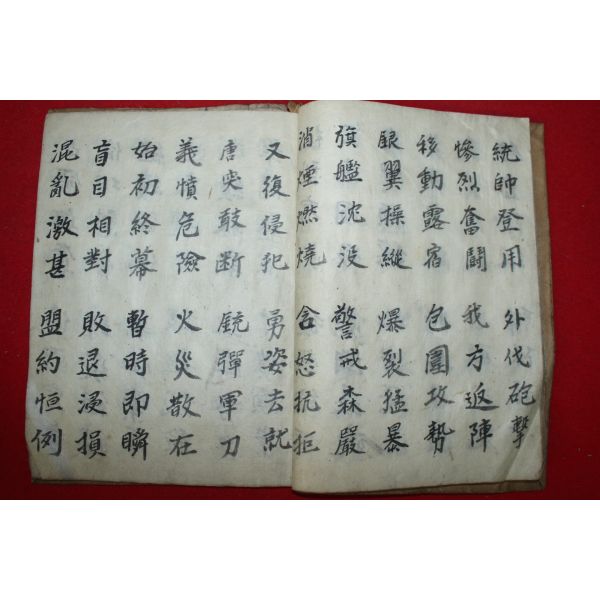 統帥登用 外伐砲擊
慘烈奮鬪 我方返陣
移動露宿 包圍攻勢
銀翼操縱 爆裂猛暴
旗艦沈没 警戒森嚴
消煙燃燒 含怒抗拒
又復侵犯 勇姿去就
唐突敢断 銃彈軍刀
義憤危險 火災散在
始初終幕 暫時即瞬
盲目相對 敗退浸損
混亂激甚 盟約恒例